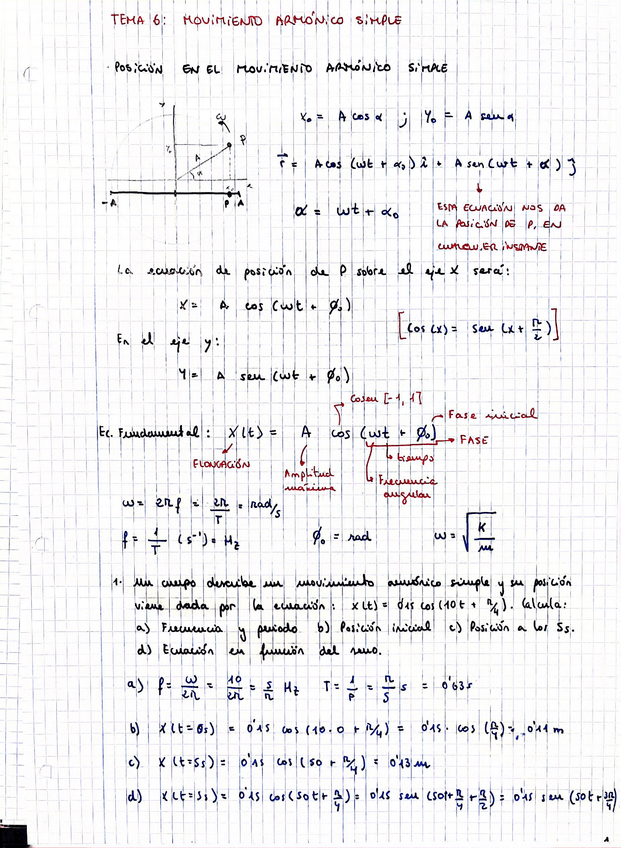 TEMA 6: MOVIMIENTO ARMÓNICO SIMPLE
· POSICIÓN EN EL MOVIMIENTO ARMÓNICO SIMPLE
y ω P A α Y₀ x₀ x -A P A
X₀ = A cos α ; Y₀ = A sen α
r⃗ = A cos (ωt + α₀) i + A sen (ωt + α) j
α = ωt + α₀
ESTA ECUACIÓN NOS DA
LA POSICIÓN DE P, EN
CUALQUIER INSTANTE
La ecuación de posición de P sobre el eje X será:
X = A cos (ωt + ϕ₀)
[cos (x) = sen (x + π/2)]
En el eje y:
Y = A sen (ωt + ϕ₀)
Coseno [-1, 1]
Fase inicial
Ec. Fundamental: X(t) = A cos (ωt + ϕ₀)
FASE
tiempo
ELONGACIÓN
Amplitud
máxima
Frecuencia
angular
ω = 2πf = 2π/T = rad/s
f = 1/T (s⁻¹) = Hz
ϕ₀ = rad
ω = √(K/m)
1. Un cuerpo describe un movimiento armónico simple y su posición
viene dada por la ecuación: x(t) = 0'15 cos (10t + π/4). Calcula:
a) Frecuencia y periodo b) Posición inicial c) Posición a los 5s.
d) Ecuación en función del seno.
a) f = ω/2π = 10/2π = 5/π Hz T = 1/f = π/5 s = 0'63s
b) X (t=0s) = 0'15 cos (10·0 + π/4) = 0'15 · cos (π/4) = 0'11 m
c) X (t=5s) = 0'15 cos (50 + π/4) = 0'13 m
d) X (t=5s) = 0'15 cos (50t + π/4) = 0'15 sen (50t + π/4 + π/2) = 0'15 sen (50t + 3π/4)